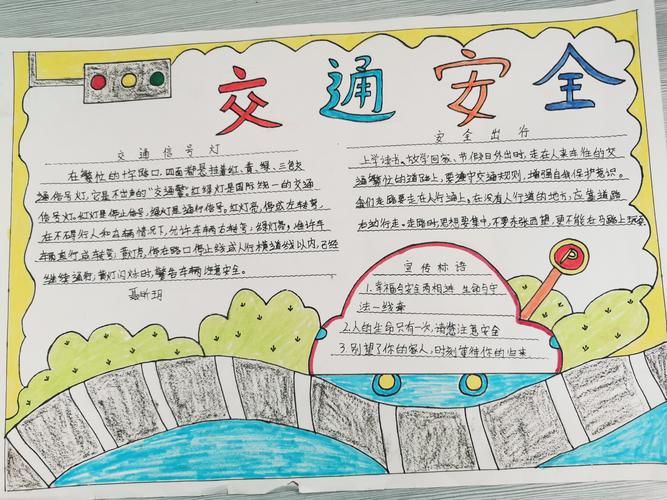 交通安全
交通信号灯
在繁忙的十字路口，四面都悬挂着红、青、绿、三色交
通信号灯，它是不出声的“交通警”红绿灯是国际统一的交通
信号灯。红灯是停止信号，绿灯是通行信号。红灯亮，停或左转弯，
在不碍行人和车辆情况下，允许车辆右转弯；绿灯亮，准许车
车辆直行或转弯；黄灯亮，停在路口停止线或人行横道线以内，已经
继续通行；黄灯闪烁时，警告车辆注意安全。
聂昕玥
安全出行
上学读书、放学回家、节假日外出时，走在人来车往的交
通繁忙的道路上，要遵守交通规则，增强自我保护意识。
我们走路要走在人行道上。在没有人行道的地方，应靠道路
右边行走。走路时，思想要集中，不要东张西望，更不能在马路上玩耍
宣传标语
1.幸福与安全两相连 生命与守
法一线牵
2.人的生命只有一次，请您注意安全
3.别忘了你的家人，时刻等待你的归来